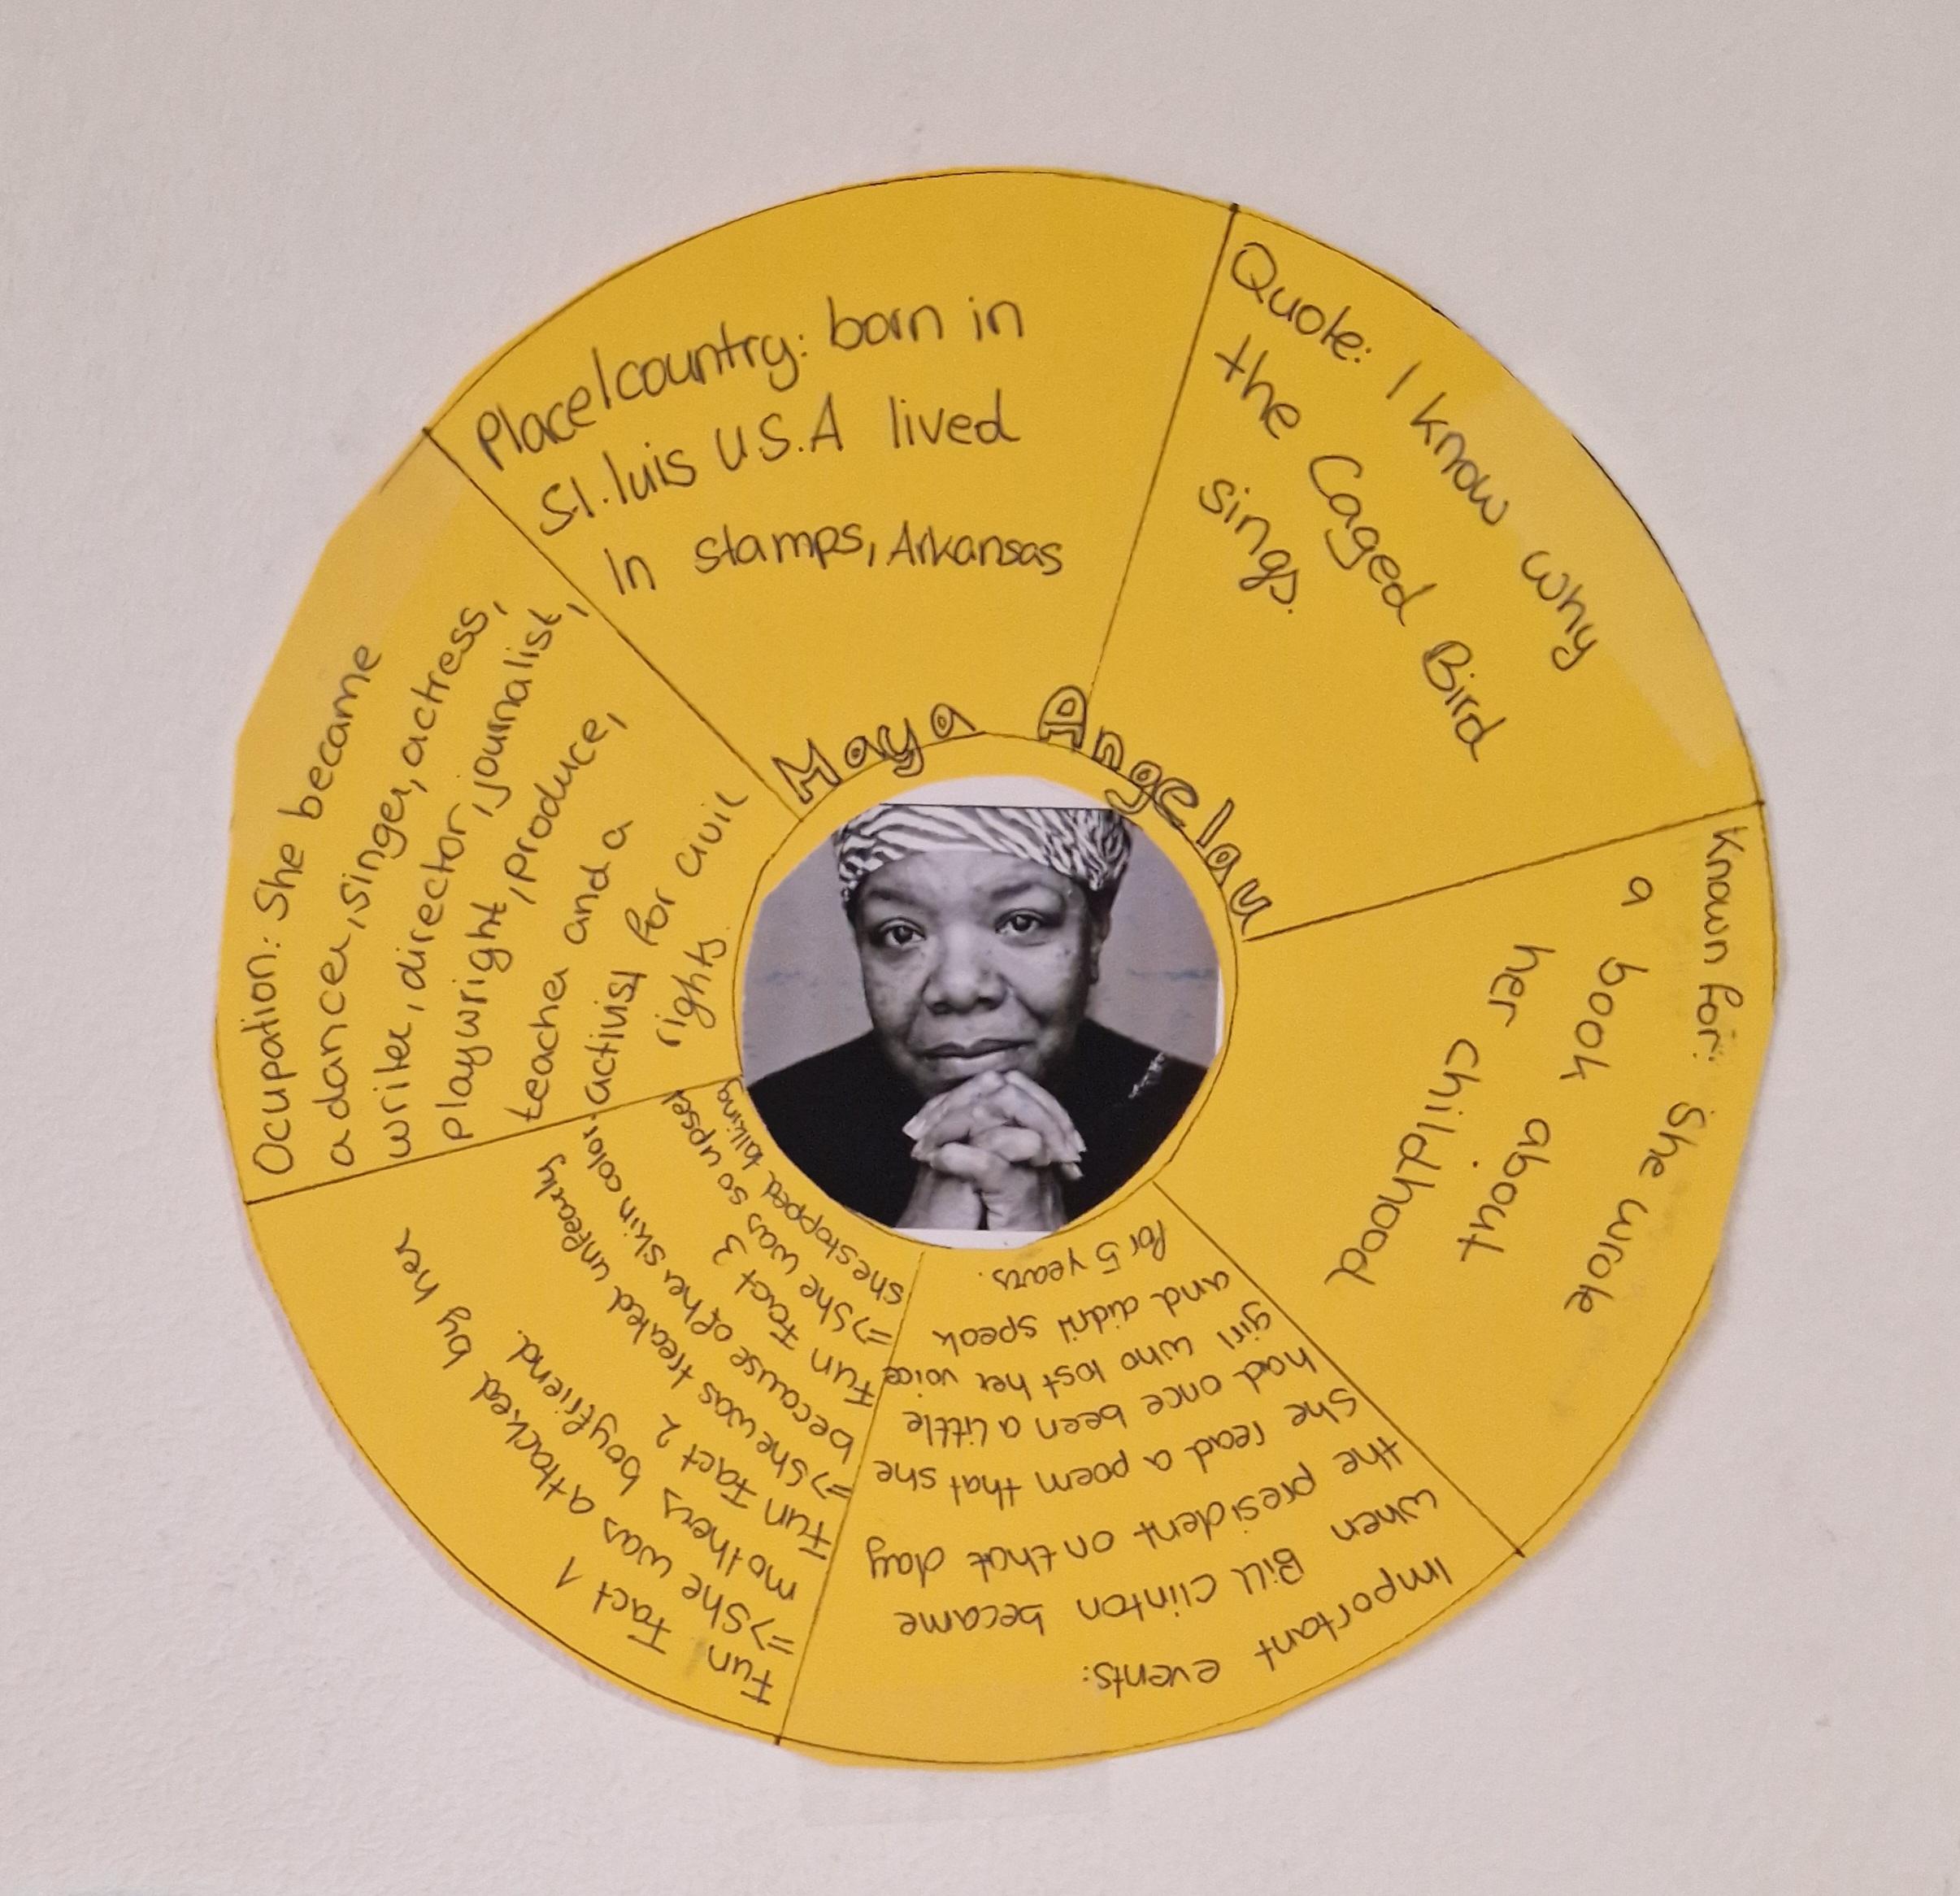 Maya Angelau
Place/country: born in
St. luis U.S.A lived
In stamps, Arkansas
Quote: I know why
the Caged Bird
sings.
Known for: She wrote
a book about
her childhood
Important events:
when Bill Clinton became
the president on that day
she read a poem that she
had once been a little
girl who lost her voice
and didn't speak
for 5 years.
Fun Fact 1
=> She was attacked by her
mothers boyfriend.
Fun Fact 2
=> She was treated unfearly
because of her skin color.
Fun Fact 3
=> She was so upset
she stopped talking
Occupation: She became
a dancer, singer, actress,
writer, director, journalist,
playwright, produce,
teacher and a
activist for civil
rights.